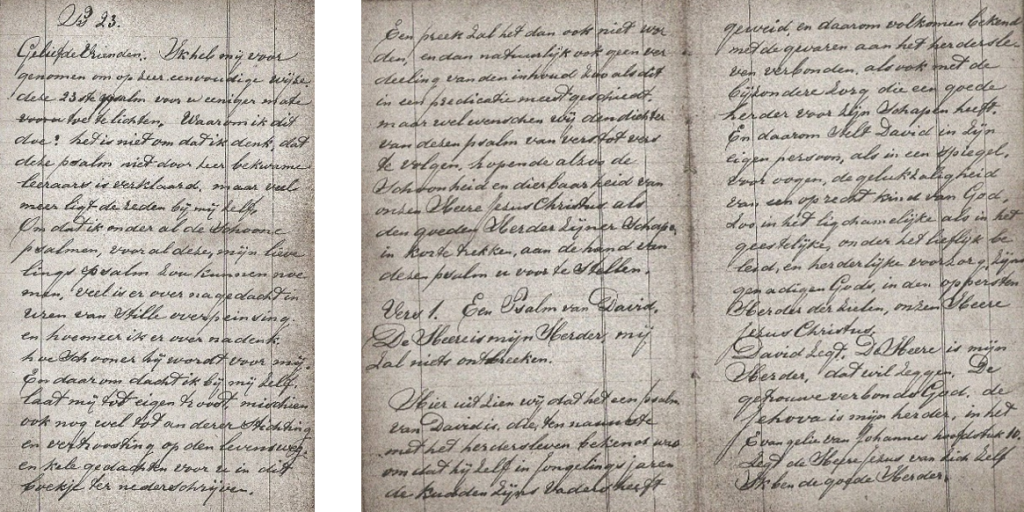 Ps 23.
Geliefde Vrienden. Ik heb mij voor
genomen om op zeer eenvoudige wijze
deze 23ste psalm voor u eeniger mate
toe te lichten. Waarom ik dit
doe? het is niet om dat ik denk, dat
deze psalm niet door zeer bekwame
leeraars is verklaard, maar veel
meer ligt de reden bij mij zelf,
Om dat ik onder al de schoone
psalmen, voor al deze, mijn lieve
lings psalm zou kunnen noe
men, veel is er over nagedacht in
uren van stille overpeinsing.
en hoe meer ik er over nadenk.
hoe schooner hij wordt voor mij.
En daarom dacht ik bij mij zelf.
laat mij tot eigen troost, mischien
ook nog wel tot anderer stichting
en vertroosting op den levensweg.
enkele gedachten voor u in dit
boekje ter nederschrijven.
Een preek zal het dan ook niet wor
den, en dan natuurlijk ook geen ver
deeling van den inhoud zoo als dit
in een predicatie meest geschiedt.
maar wel wenschen wij den dichter
van dezen psalm van vers tot vers
te volgen, hopende alzoo de
Schoonheid en dierbaarheid van
onzen Heere Jezus Christus als
den goeden Herder Zijner Schapen,
in korte trekken, aan de hand van
dezen psalm u voor te stellen.
Vers 1. Een Psalm van David,
De Heere is mijn Herder, mij
zal niets ontbreeken.
Hier uit zien wij dat het een psalm
van David is, die, ten nauwste
met het herdersleven bekend was
om dat hij zelf in jongelings jaren
de kudden zijns Vaders heeft
geweid, en daarom volkomen bekend
met de gevaren aan het herdersle
ven verbonden, als ook met de
bijzondere zorg die een goede
herder voor zijn schapen heeft.
En daarom stelt David in zijn
eigen persoon, als in een spiegel,
voor oogen, de gelukzaligheid
van een oprecht kind van God,
Zoo in het ligchamelijke als in het
geestelijke, onder het lieflijk be
leid, en herderlijke voorzorg, zijns
genadigen Gods, in den oppersten
Herder der zielen, onzen Heere
Jezus Christus,
David zegt, De Heere is mijn
Herder, dat wil zeggen, De
getrouwe verbonds God, de
Jehova is mijn herder, in het
Evangelie van Johannes hoofdstuk 10.
Zegt de Heere Jezus van zich zelf
Ik ben de goede Herder.